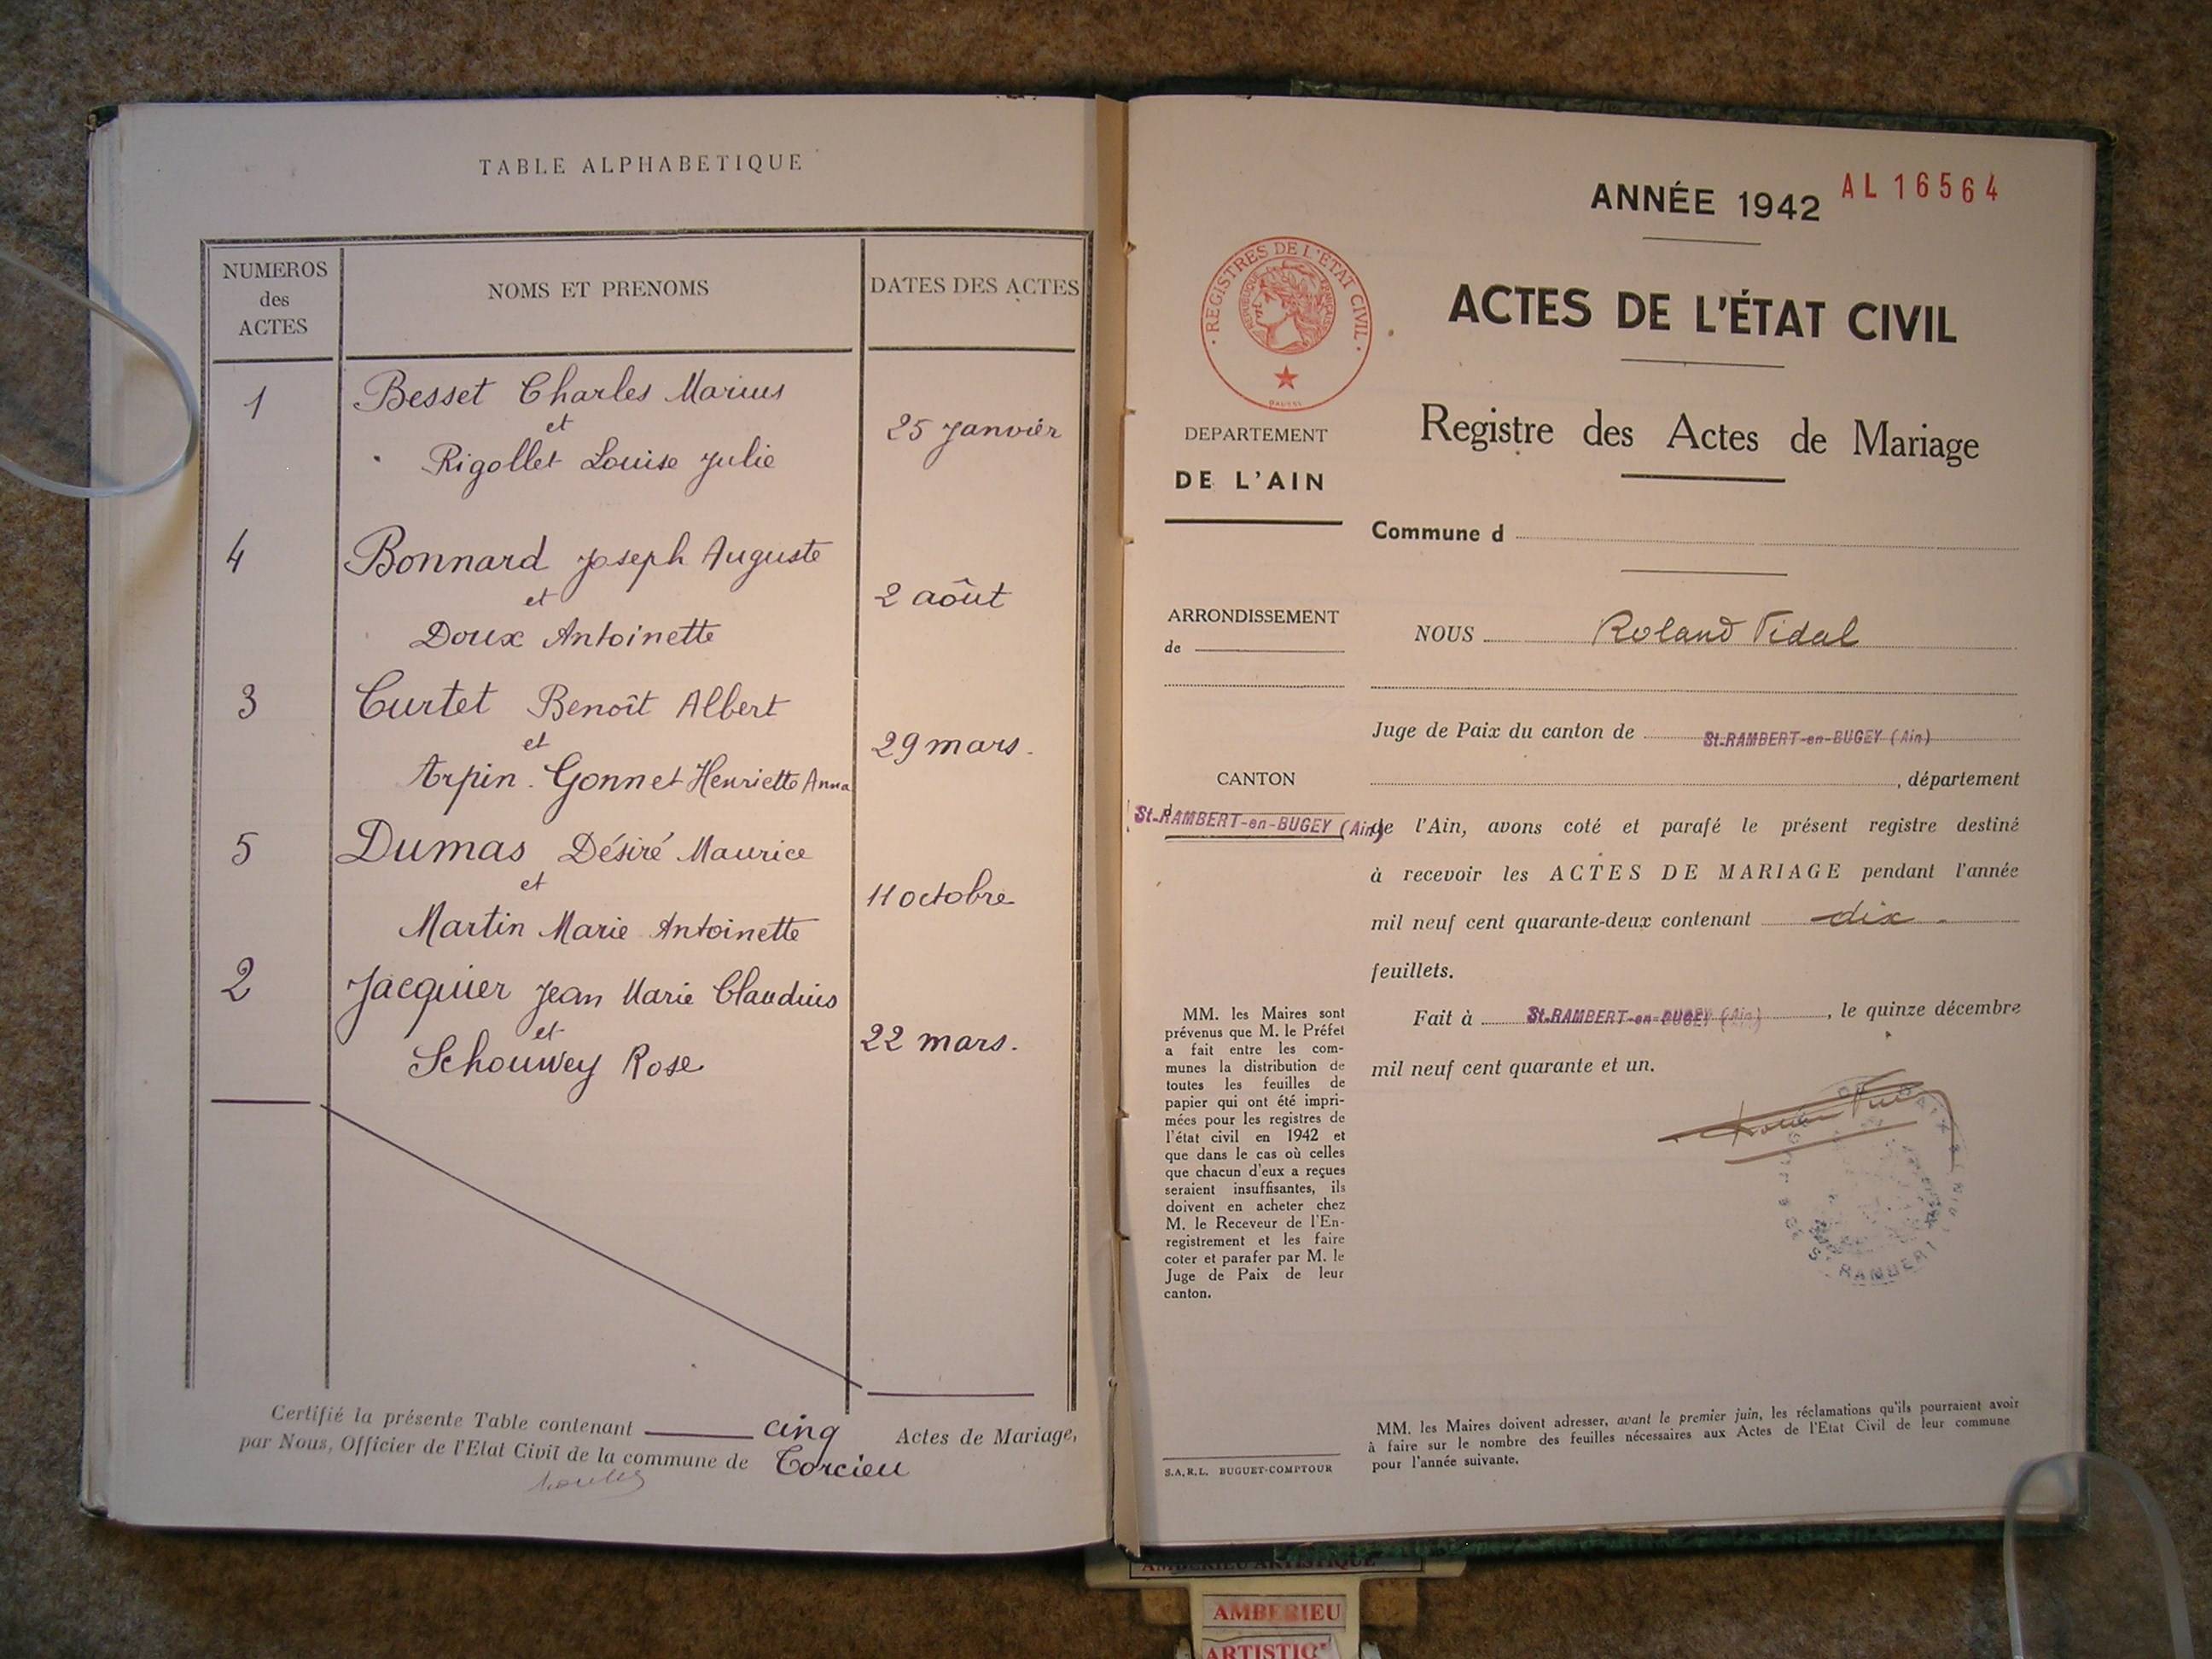 TABLE ALPHABETIQUE
NUMEROS
des
ACTES
NOMS ET PRENOMS
DATES DES ACTES
1
Besset Charles Marius
et
Rigollet Louise Julie
25 janvier
4
Bonnard Joseph Auguste
et
Doux Antoinette
2 aôut
3
Curtet Benoît Albert
et
Arpin-Gonnet Henriette Anna
29 mars.
5
Dumas Désiré Maurice
et
Martin Marie Antoinette
11 octobre
2
Jacquier Jean Marie Claudius
et
Schouwey Rose
22 mars.
Certifié la présente Table contenant cinq Actes de Mariage,
par Nous, Officier de l'Etat Civil de la commune de Torcieu
ANNÉE 1942
AL 16564
REGISTRES DE L'ETAT CIVIL
REPUBLIQUE FRANÇAISE
ACTES DE L'ÉTAT CIVIL
Registre des Actes de Mariage
DEPARTEMENT
DE L'AIN
Commune d
ARRONDISSEMENT
de
NOUS Roland Vidal
Juge de Paix du canton de St-RAMBERT-en-BUGEY (Ain)
CANTON
, département
d
St-RAMBERT-en-BUGEY (Ain)
de l'Ain, avons coté et parafé le présent registre destiné
à recevoir les ACTES DE MARIAGE pendant l'année
mil neuf cent quarante-deux contenant dix
feuillets.
Fait à St-RAMBERT-en-BUGEY (Ain), le quinze décembre
mil neuf cent quarante et un.
MM. les Maires sont
prévenus que M. le Préfet
a fait entre les com-
munes la distribution de
toutes les feuilles de
papier qui ont été impri-
mées pour les registres de
l'état civil en 1942 et
que dans le cas où celles
que chacun d'eux a reçues
seraient insuffisantes, ils
doivent en acheter chez
M. le Receveur de l'En-
registrement et les faire
coter et parafer par M. le
Juge de Paix de leur
canton.
S.A.R.L. BUGUET-COMPTOUR
MM. les Maires doivent adresser, avant le premier juin, les réclamations qu'ils pourraient avoir
à faire sur le nombre des feuilles nécessaires aux Actes de l'Etat Civil de leur commune
pour l'année suivante.
AMBERIEU ARTISTIQUE
AMBERIEU